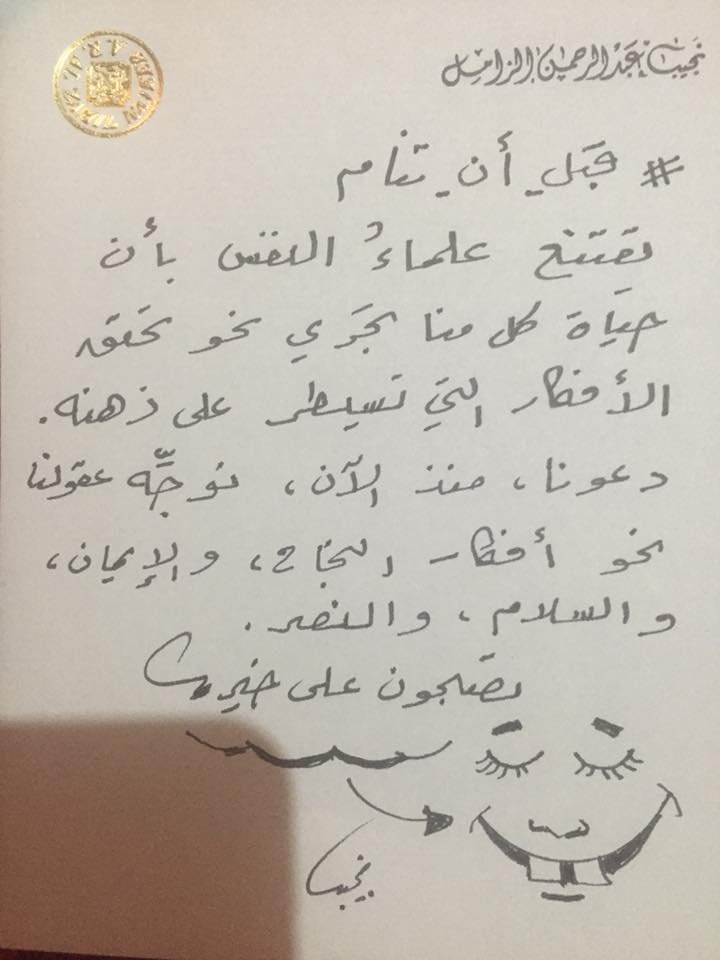 نجيب عبدالرحمن الزامل
# قبَل_أن_تنام
يقتنع علماءُ النفس بأن
حيَاة كل منا تجَري نحو تحَقق
الأفكار التي تسيطر على ذهنه.
دعونا، منذ الآن، نوجِّه عقولنا
نحو أفكار النجاح، والإيمان،
والسلام، والنصر.
تصَبحون على خير
نجيب